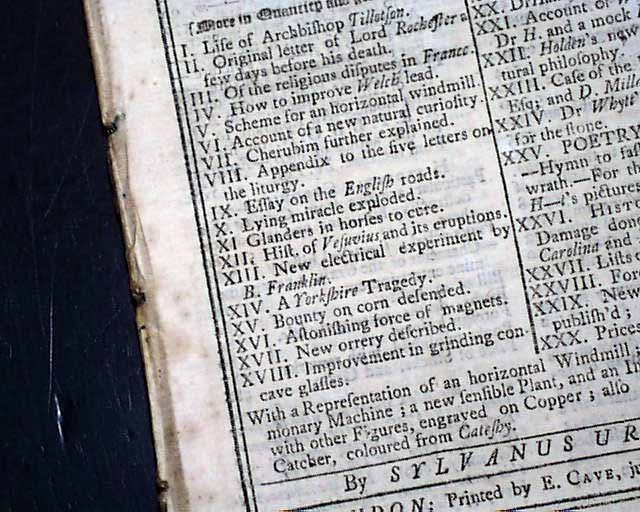 [More in Quantity and
I. Life of Archbiſhop Tillotſon.
II. Original letter of Lord Rocheſter a
few days before his death.
III. Of the religious diſputes in France.
IV. How to improve Welch lead.
V. Scheme for an horizontal windmill.
VI. Account of a new natural curioſity.
VII. Cherubim further explained.
VIII. Appendix to the five letters on
the liturgy.
IX. Eſſay on the Engliſh roads.
X. Lying miracle exploded.
XI Glanders in horſes to cure.
XII. Hiſt. of Veſuvius and its eruptions.
XIII. New electrical experiment by
B. Franklin.
XIV. A Yorkſhire Tragedy.
XV. Bounty on corn defended.
XVI. Aſtoniſhing force of magnets.
XVII. New orrery deſcribed.
XVIII. Improvement in grinding con-
cave glaſſes.
XX.
XXI. Account of
Dr H. and a mock
XXII. Holden's new
tural philoſophy.
XXIII. Caſe of the
Eſq; and D. Mill
XXIV. Dr Whyte
for the ſtone.
XXV. POETRY
—Hymn to faſ
wrath.—For th
H—t's picture
XXVI. HIST
Damage don
Carolina and
XXVII. Liſts o
XXVIII. For
XXIX. New
publiſh'd;
XXX. Price
With a Repreſentation of an horizontal Windmill
monary Machine; a new ſenſible Plant, and an
with other Figures, engraved on Copper; alſo
Catcher, coloured from Cateſby.
By SYLVANUS UR
NDON: Printed by E. CAVE, ju